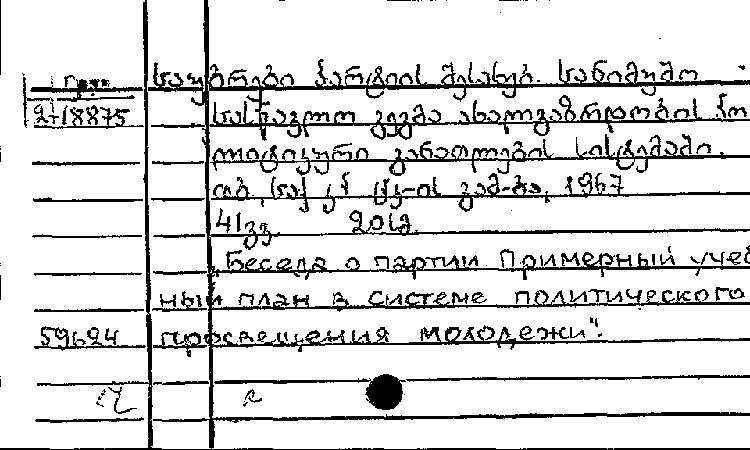 საუბრები პარტიის შესახებ. სანიმუშო
2-18875 სასწავლო გეგმა ახალგაზრდობის პო
ლიტიკური განათლების სისტემაში.
თბ., 1967
41 გვ.
„Беседа о партии Примерный учеб
ный план в системе политического
59624 просвещения молодежи".